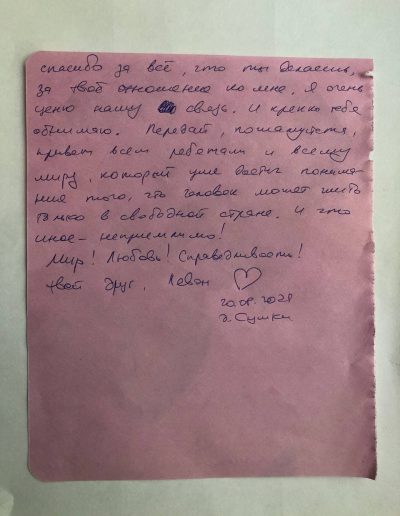 спасибо за всё, что ты делаешь,
за твоё отношение ко мне. Я очень
ценю нашу связь. И крепко тебя
обнимаю. Передай, пожалуйста,
привет всем ребятам и всему
миру, который уже достиг понима-
ния того, что человек может жить
только в свободной стране. И что
иное - неприемлимо!
Мир! Любовь! Справедливость!
твой друг, Леван ♡
20.08.2021